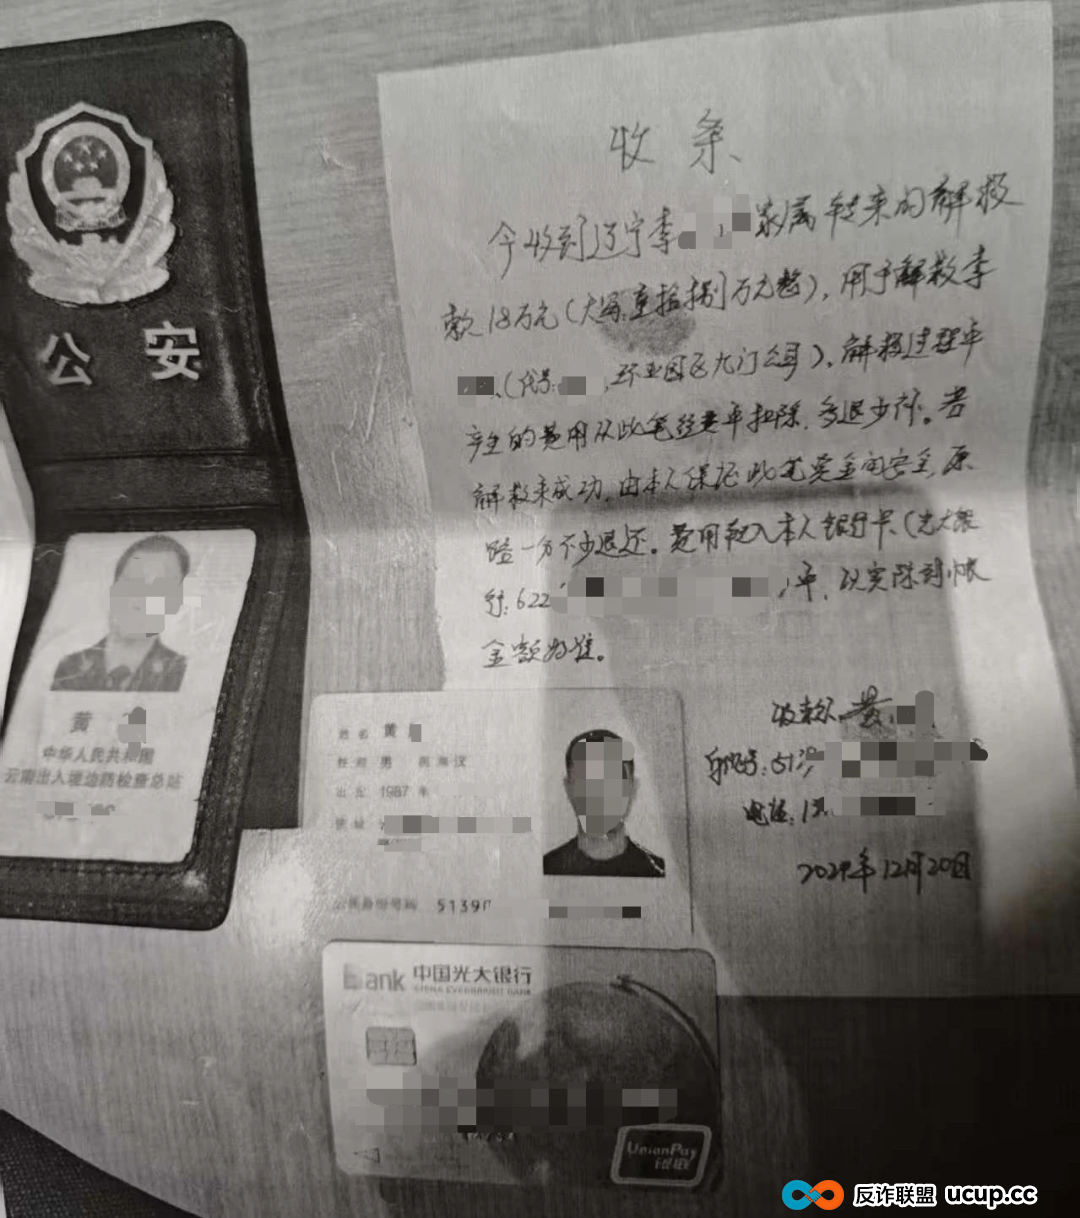 公安
黄
中华人民共和国
云南出入境边防检查总站
收条
今收到辽宁李 家属转来的解救
款18万元(大写:壹拾捌万元整),用于解救李
(代号: ,环亚园区九门公司)、解救过程中
产生的费用从此笔经费中扣除,多退少补。若
解救未成功,由本人保证此笔资金的安全,原
路一分不少退还。费用转入本人银行卡(光大银
行:622 )中,以实际到帐
金额为准。
收款人:黄
身份证号:513
电话:1
2024年12月20日
姓名 黄
性别 男 民族 汉
出生 1987 年
住址
公民身份号码 5139
Bank 中国光大银行
CHINA EVERBRIGHT BANK
UnionPay
银联
反诈联盟 ucup.cc